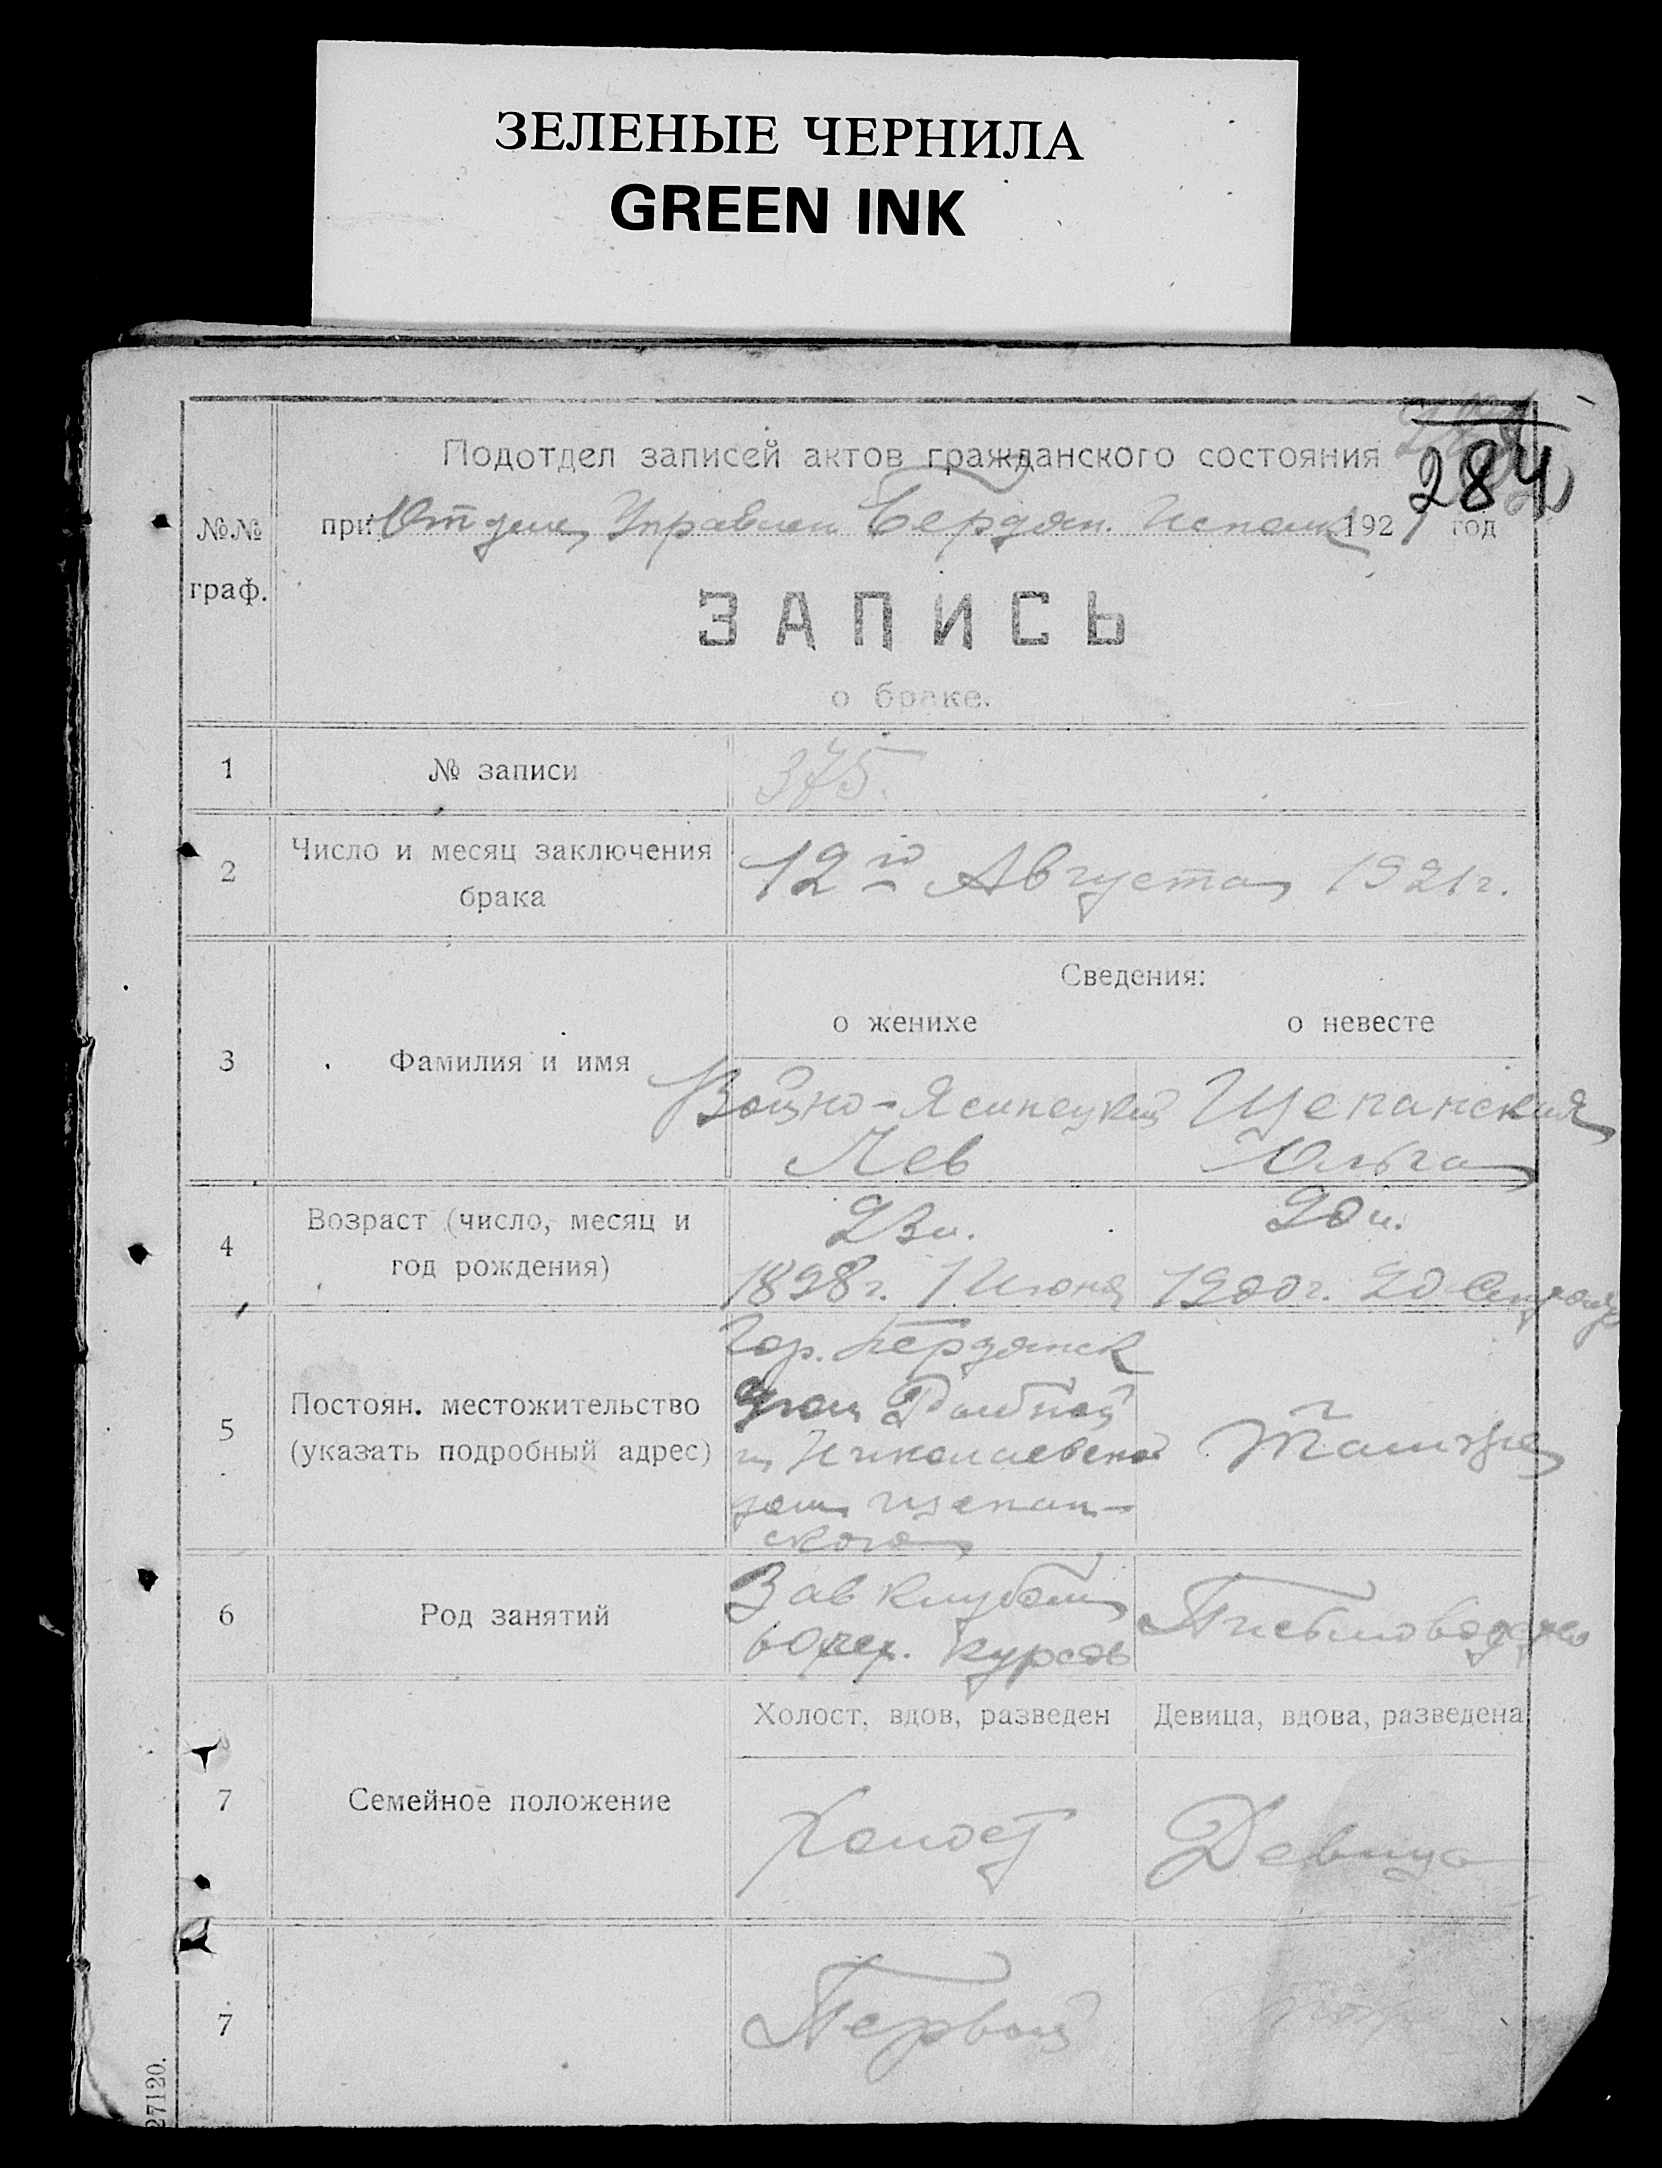 ЗЕЛЕНЫЕ ЧЕРНИЛА
GREEN INK
284
Подотдел записей актов гражданского состояния
при Отделе Управлен. Бердян. Исполк. 1921 год
№№
граф.
ЗАПИСЬ
о браке.
1 № записи 375.
2 Число и месяц заключения брака 12го Августа 1921г.
Сведения:
о женихе о невесте
3 Фамилия и имя Войно-Ясинецкий Щепанская
Лев Ольга
4 Возраст (число, месяц и год рождения) 23 л. 20 л.
1898г. 1 Июня 1900г. 20
5 Постоян. местожительство (указать подробный адрес)
Гор. Бердянск
Угол
и Николаевской
дом Щепан-
ского
Там же
6 Род занятий
Зав клубом
60 пех. курсов
Письмоводит
Холост, вдов, разведен Девица, вдова, разведена
7 Семейное положение Холост Девица
7 Первый
27120.